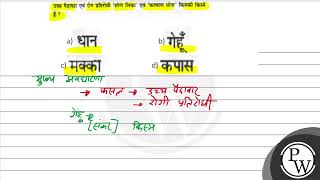 उच्च पैदावार एवं रोग प्रतिरोधी 'सोना लिका' एवं 'कल्याण सोना' किसकी किस्में
हैं ?
a) धान b) गेहूँ
c) मक्का d) कपास
मुख्य अवधारणा
→ फसल → उच्च पैदावार
→ रोगी प्रतिरोधी
गेहूँ →
[संकर] किस्म
PW